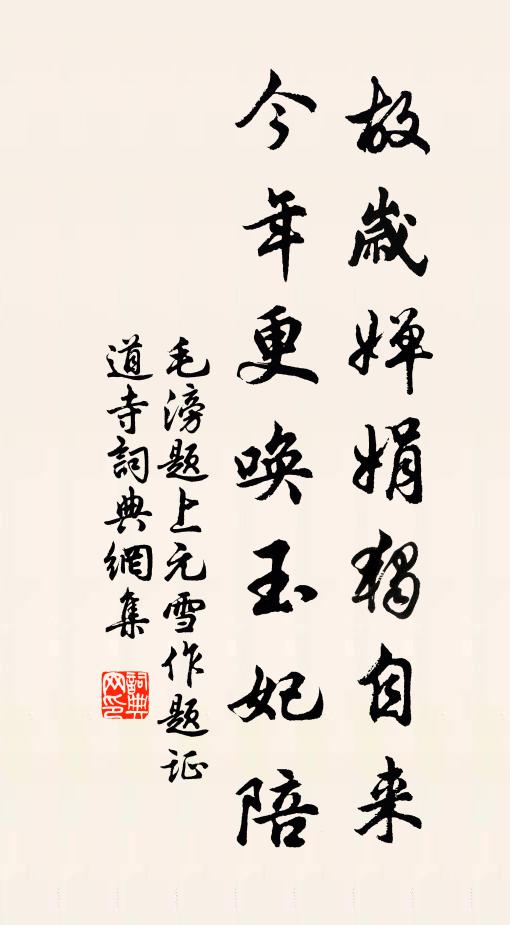 故歲嬋娟獨自来
今年更喚玉妃陪
毛滂题上元雪作题证
道寺詞典網集
詞典网印